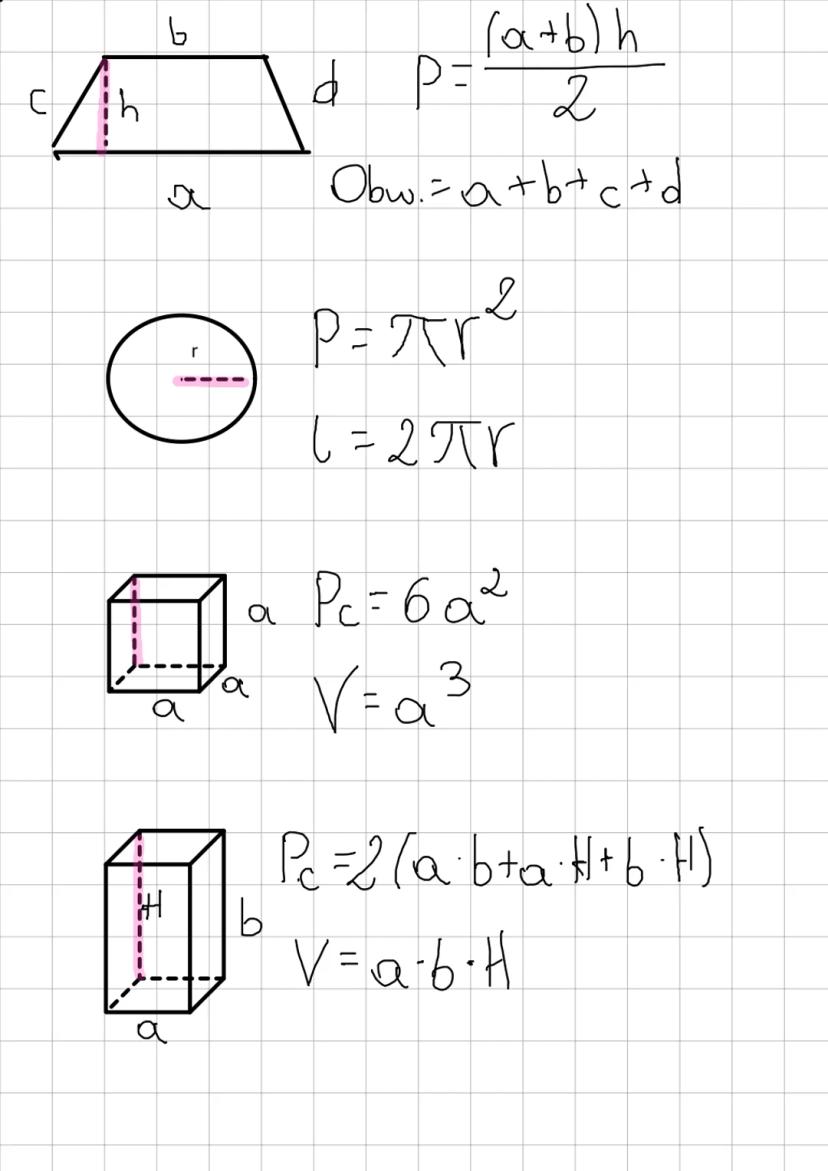 b
c h d P = (a+b)h / 2
a Obw. = a+b+c+d
r P = πr²
l = 2πr
a Pc = 6a²
a
a V = a³
H b Pc = 2(a·b+a·H+b·H)
a V = a·b·H